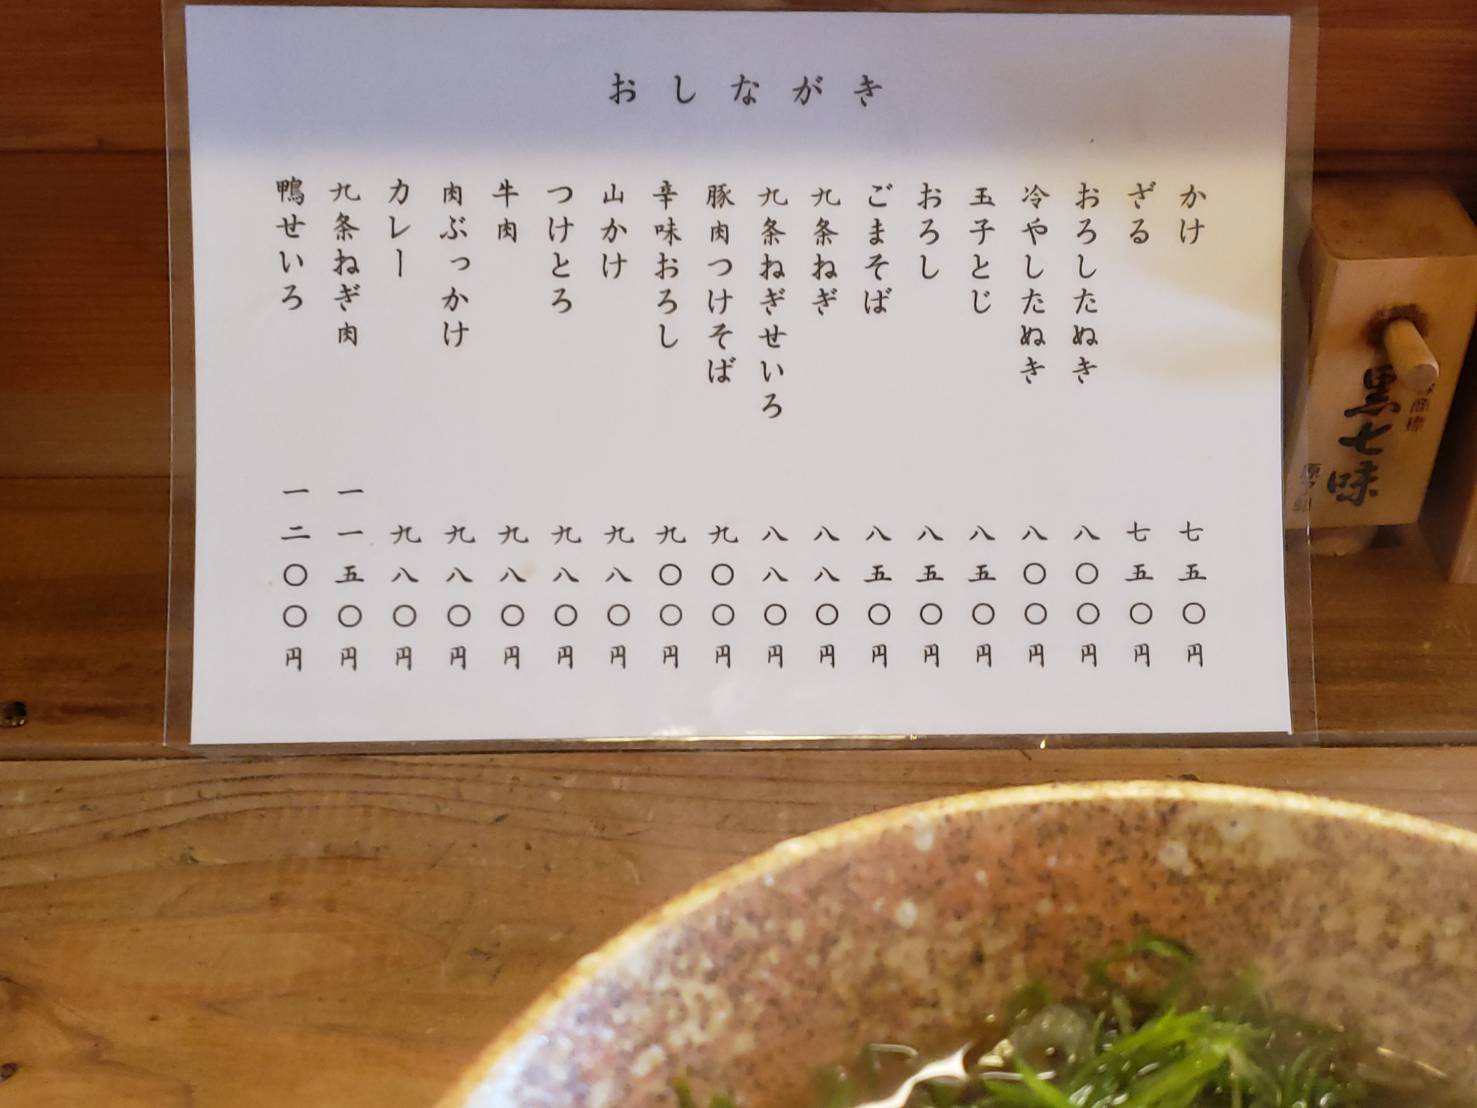 おしながき
かけ 七五〇円
ざる 七五〇円
おろしたぬき 八〇〇円
冷やしたぬき 八〇〇円
玉子とじ 八五〇円
おろし 八五〇円
ごまそば 八五〇円
九条ねぎ 八八〇円
九条ねぎせいろ 八八〇円
豚肉つけそば 九〇〇円
辛味おろし 九〇〇円
山かけ 九八〇円
つけとろ 九八〇円
牛肉 九八〇円
肉ぶっかけ 九八〇円
カレー 九八〇円
九条ねぎ肉 一一五〇円
鴨せいろ 一二〇〇円
商標
黒七味